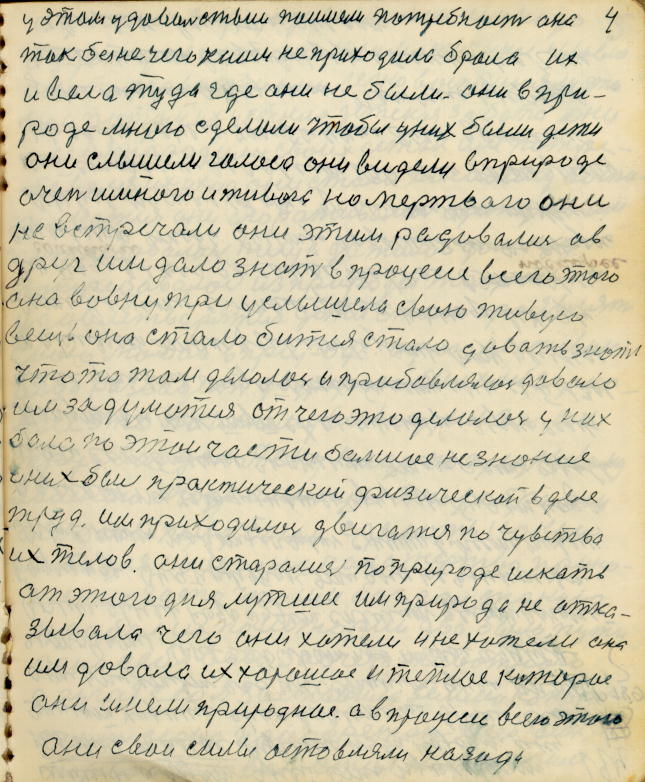 у этом удовольствии поимели потребност она 4
так безнечего кним не приходила брала их
и вела туда где они не были. они в при-
роде много сделали чтобы уних были дети
они слышели голоса они видели в природе
очен многого и живога но мертвого они
не встречали они этим радовалис ов
друг им дало знат в процеси всего этого
она вовнутри услышела свою живую
вещь она стало битися стало довать знать
что то там делолос и прибовлялос довало
им задуматся от чего это делолос у них
было по этой части балшое незноние
уних был практической физической в деле
труд. им приходилос двигатся по чувства
их телов. они старалис по природе искать
от этого дня лутшее им природа не отка-
зывала чего они хотели и не хотели она
им довала их хорошое и теплое которое
они имели природное. а в процеси всего этого
они свои силы оставляли назади